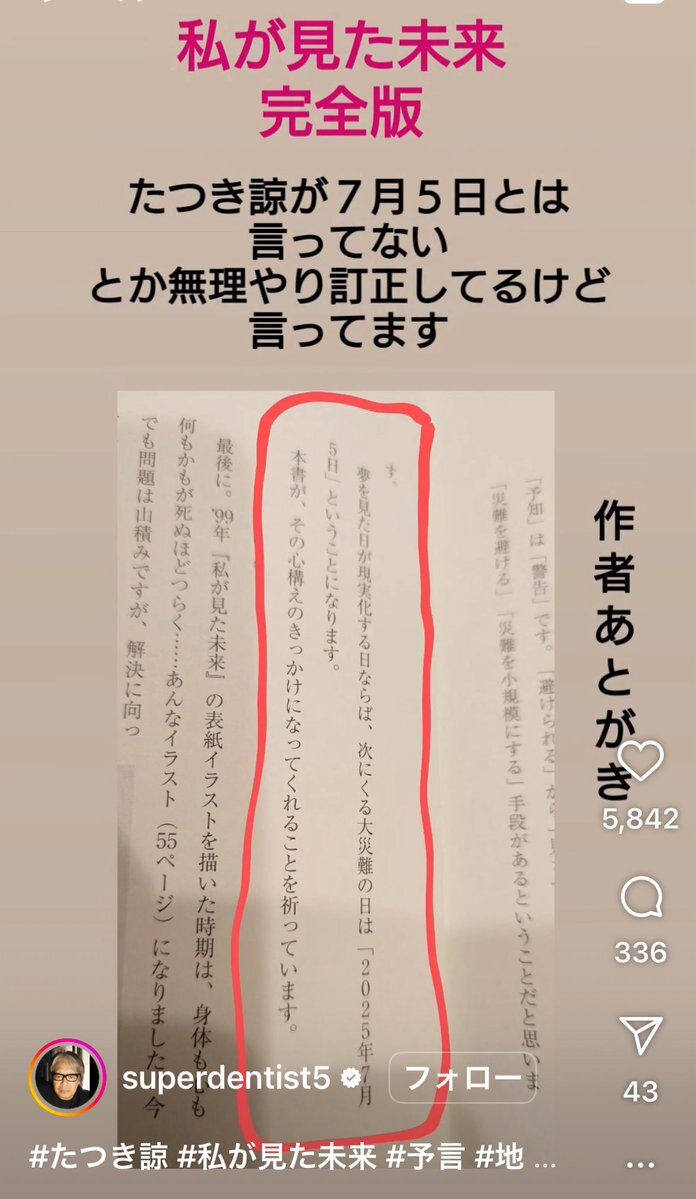 私が見た未来
完全版
たつき諒が７月５日とは
言ってない
とか無理やり訂正してるけど
言ってます
作者あとがき
「予知」は「警告」です。「避けられる」から
「災難を避ける」「災難を小規模にする」手段があるということだと思いま
す。
夢を見た日が現実化する日ならば、次にくる大災難の日は「２０２５年７月
５日」ということになります。
本書が、その心構えのきっかけになってくれることを祈っています。
最後に。’99年『私が見た未来』の表紙イラストを描いた時期は、身体も
も
何もかもが死ぬほどつらく……あんなイラスト（55ページ）になりました
今
でも問題は山積みですが、解決に向っ
5,842
336
43
superdentist5
フォロー
#たつき諒 #私が見た未来 #予言 #地 ...